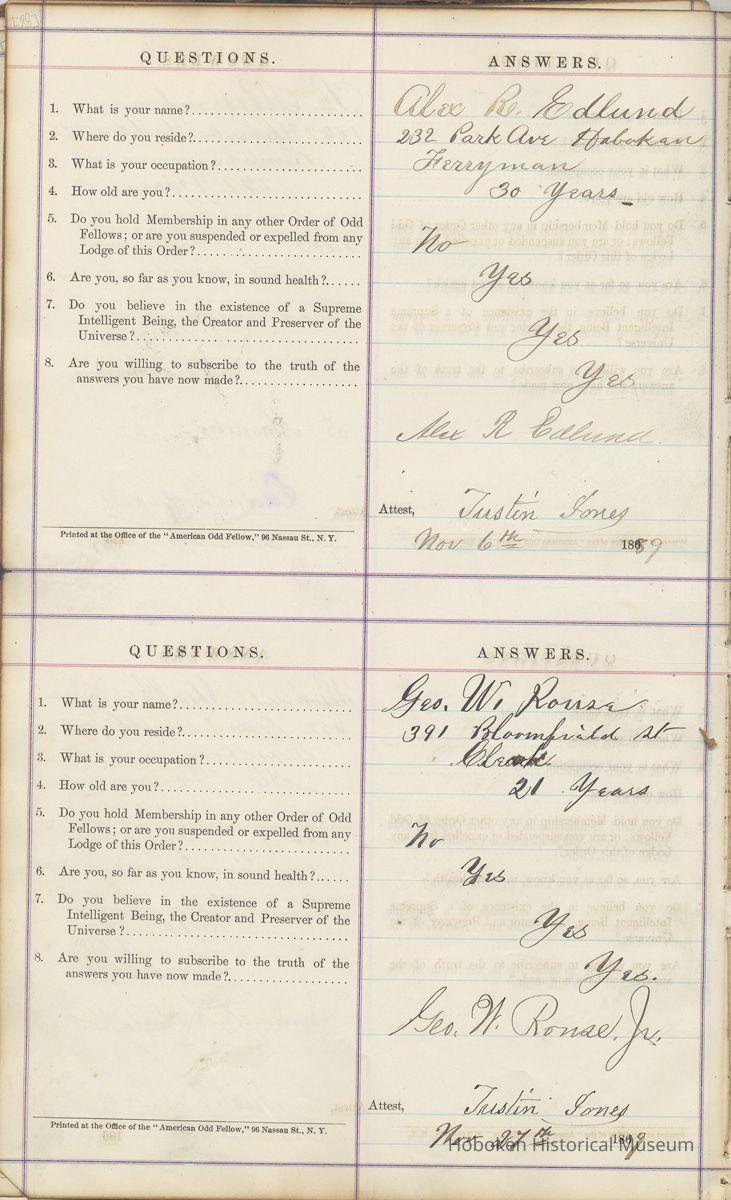 QUESTIONS.
ANSWERS.
1. What is your name?
Alex R. Edlund
2. Where do you reside?
232 Park Ave Hoboken
3. What is your occupation?
Ferryman
4. How old are you?
30 Years
5. Do you hold Membership in any other Order of Odd
Fellows; or are you suspended or expelled from any
Lodge of this Order?
No
6. Are you, so far as you know, in sound health?
Yes
7. Do you believe in the existence of a Supreme
Intelligent Being, the Creator and Preserver of the
Universe?
Yes
8. Are you willing to subscribe to the truth of the
answers you have now made?
Yes
Alex R Edlund.
Attest, Justin Jones
Printed at the Office of the "American Odd Fellow," 96 Nassau St., N. Y.
Nov 6th 1889
QUESTIONS.
ANSWERS.
1. What is your name?
Geo. W. Rouse
2. Where do you reside?
391 Bloomfield st
3. What is your occupation?
Clerk
4. How old are you?
21 Years
5. Do you hold Membership in any other Order of Odd
Fellows; or are you suspended or expelled from any
Lodge of this Order?
No
6. Are you, so far as you know, in sound health?
Yes
7. Do you believe in the existence of a Supreme
Intelligent Being, the Creator and Preserver of the
Universe?
Yes
8. Are you willing to subscribe to the truth of the
answers you have now made?
Yes.
Geo. W. Rouse, Jr.
Attest, Justin Jones
Printed at the Office of the "American Odd Fellow," 96 Nassau St., N. Y.
Nov 27th
Hoboken Historical Museum